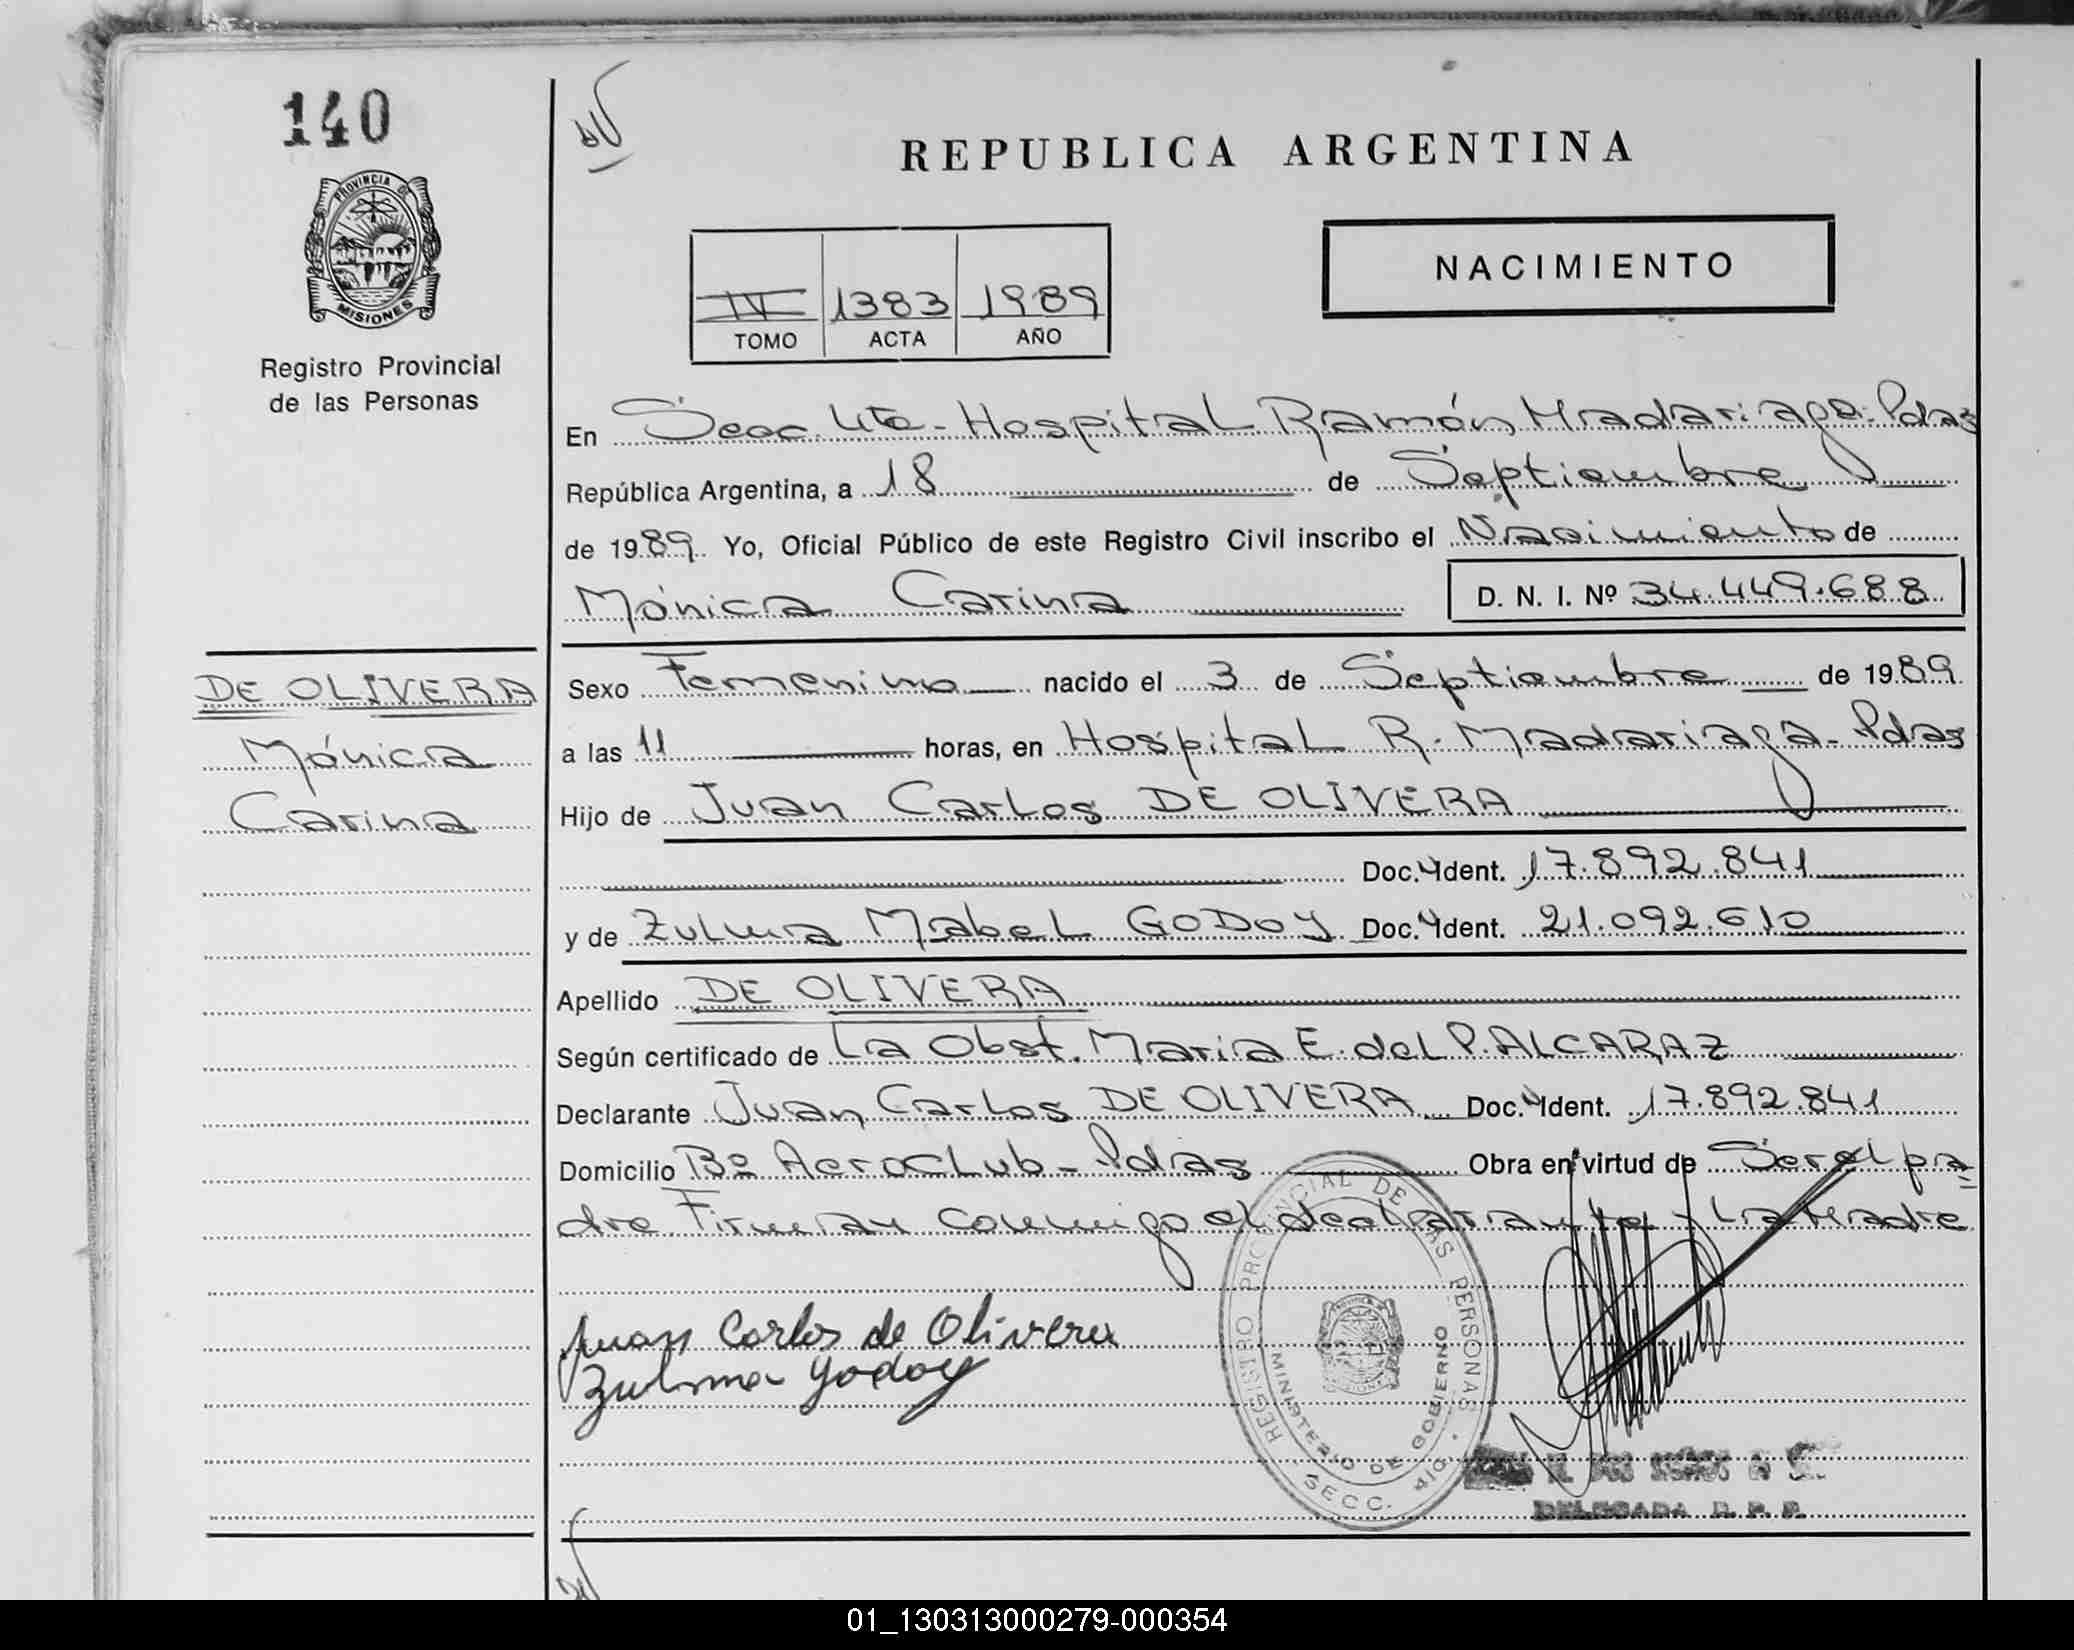 140
REPUBLICA ARGENTINA
PROVINCIA DE
MISIONES
Registro Provincial
de las Personas
IV 1383 1989
TOMO ACTA AÑO
NACIMIENTO
En Secc. 4ta - Hospital Ramón Madariaga - Pdas
República Argentina, a 18 de Septiembre
de 1989. Yo, Oficial Público de este Registro Civil inscribo el Nacimiento de
Mónica Carina D. N. I. Nº 34.449.688
DE OLIVERA
Mónica
Carina
Sexo Femenino nacido el 3 de Septiembre de 1989
a las 11 horas, en Hospital R. Madariaga - Pdas
Hijo de Juan Carlos DE OLIVERA
Doc. Ident. 17.892.841
y de Zulma Mabel GODOY Doc. Ident. 21.092.610
Apellido DE OLIVERA
Según certificado de La Obst. Maria E. del P. ALCARAZ
Declarante Juan Carlos DE OLIVERA Doc. Ident. 17.892.841
Domicilio Bº Aeroclub - Pdas Obra en virtud de Ser el pa=
dre. Firman conmigo el declarante y La Madre
Juan Carlos de Olivera
Zulma Godoy
REGISTRO PROVINCIAL DE LAS PERSONAS
MINISTERIO DE GOBIERNO
SECC.
DELEGADA R. P. P.
01_130313000279-000354